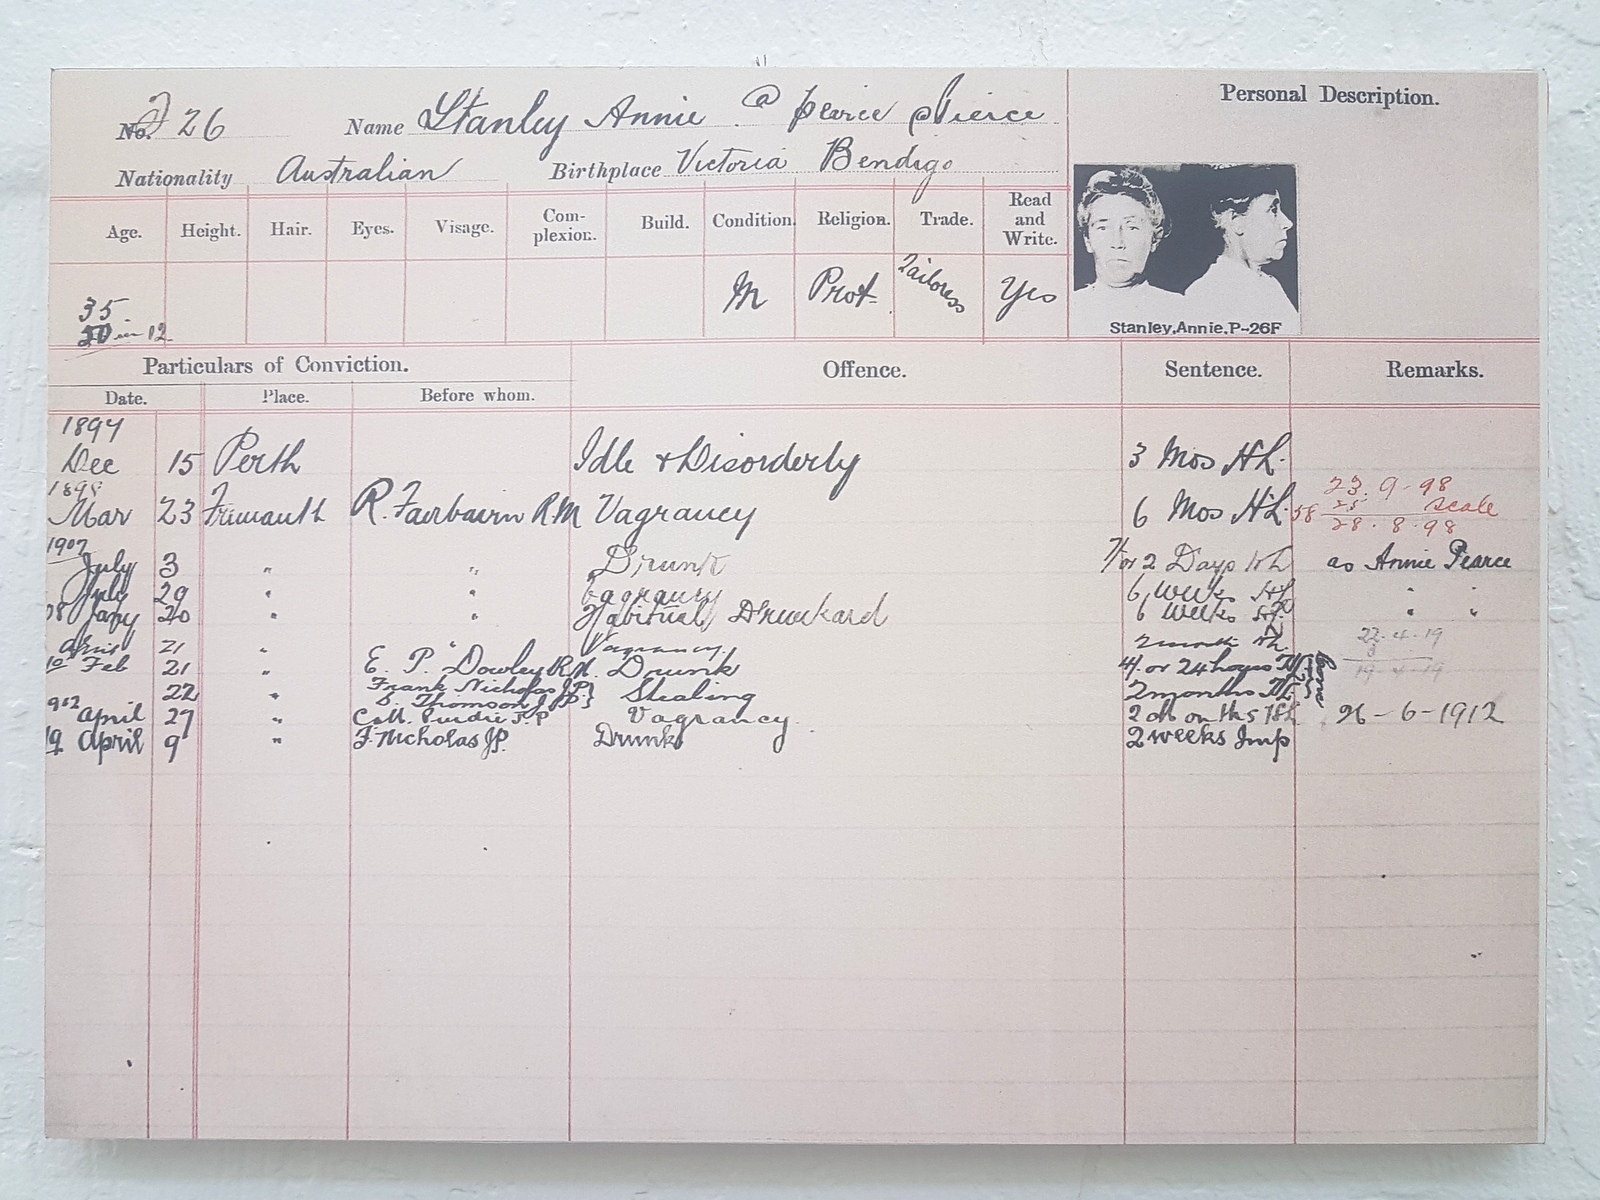 No. 26 Name Stanley Annie @ Pearce Pierce
Personal Description.
Nationality Australian Birthplace Victoria Bendigo
Age. Height. Hair. Eyes. Visage. Com-plexion. Build. Condition. Religion. Trade. Read and Write.
35 M Prot. Tailoress Yes
50 in 12
Stanley,Annie.P-26F
Particulars of Conviction. Offence. Sentence. Remarks.
Date. Place. Before whom.
1897
Dec 15 Perth Idle & Disorderly 3 Mos H.L.
1898 23.9-98
Mar 23 R. Fairbairn R.M Vagrancy 6 Mos H.L. Scale
28.8.98
1907
July 3 " " Drunk 7/ or 2 Days H L as Annie Pearce
July 29 " " Vagrancy 6 Weeks HL " "
08 Jany 20 " " Habitual Drunkard 6 Weeks
April 21 " " Vagrancy. 2 month HL 22.4.19
10 Feb 21 " E. P. Dowley R.M. Drunk 4/ or 24 hours 19-4-19
22 " Frank Nicholas J.P. } Stealing 2 months HL
Thomson J.P.
1912 April 27 " Purdie J.P Vagrancy. 26-6-1912
19 April 9 " F. Nicholas JP. Drunk 2 weeks Imp